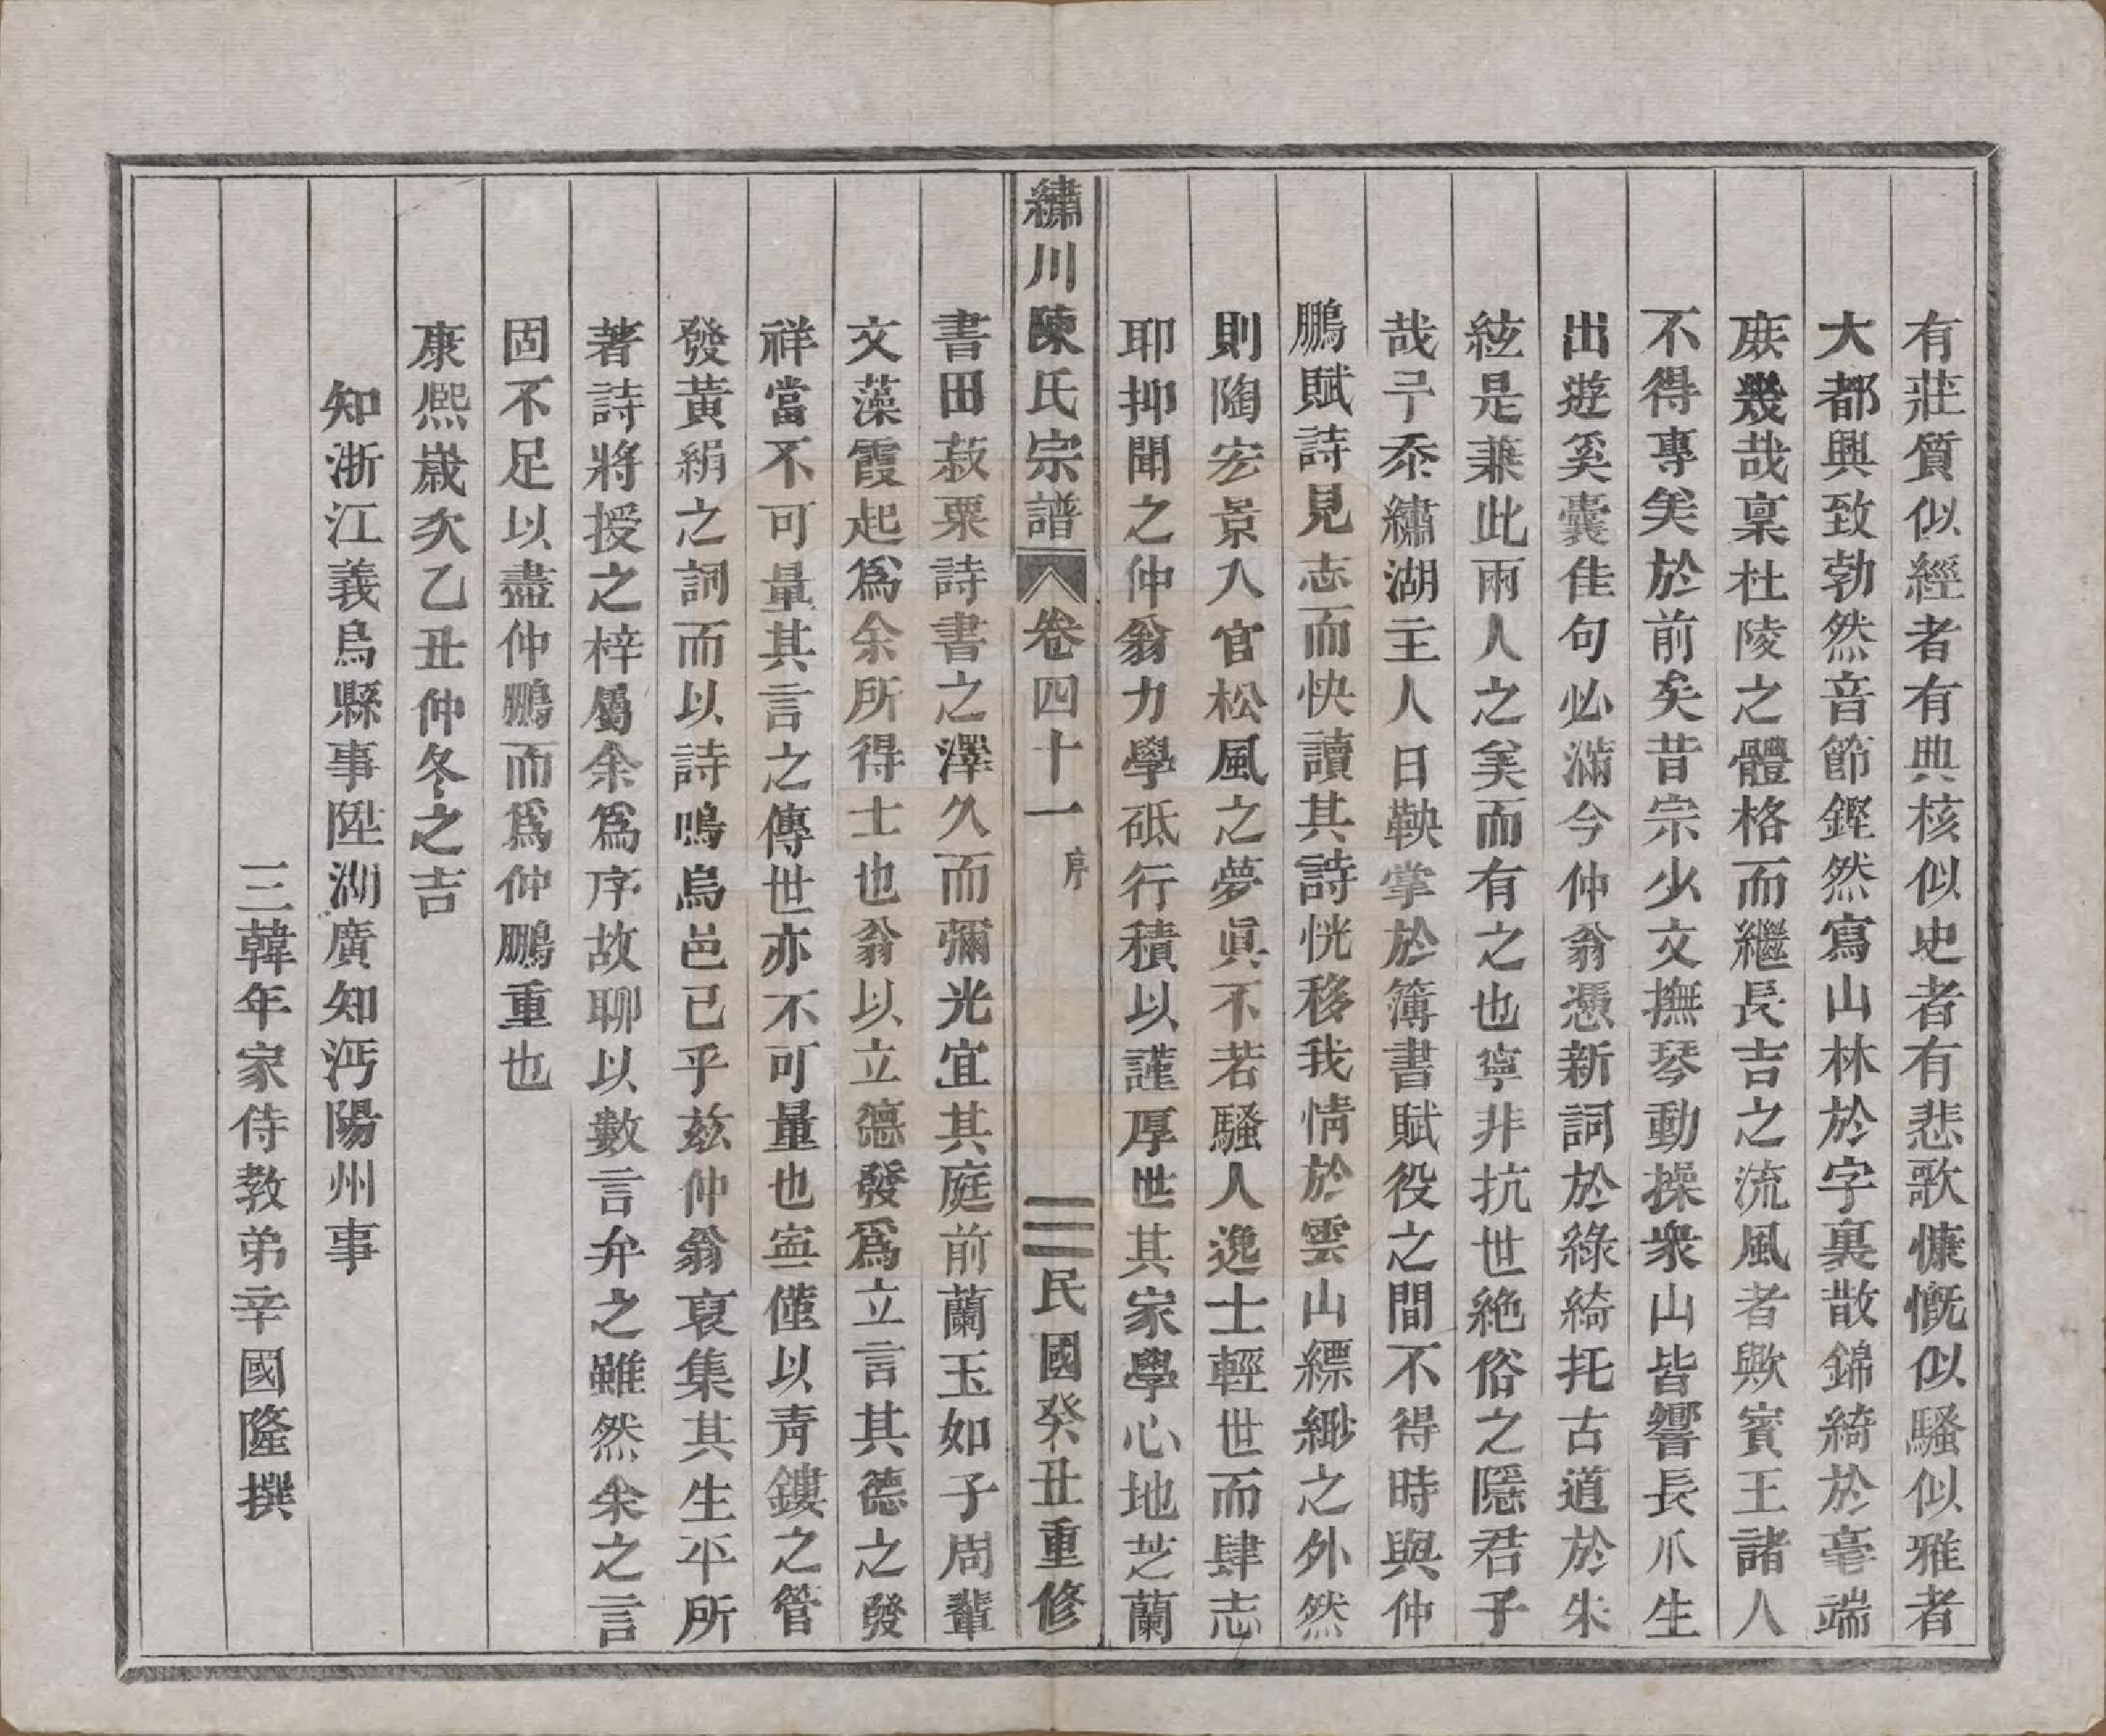 有莊質似經者有典核似史者有悲歌慷慨似騷似雅者
大都興致勃然音節鏗然寫山林於字裏散錦綺於毫端
庻幾哉稟杜陵之體格而繼長吉之流風者歟賓王諸人
不得專美於前矣昔宗少文撫琴動操衆山皆響長爪生
出遊奚囊佳句必滿今仲翁憑新詞於綠綺托古道於朱
絃是兼此兩人之美而有之也寧非抗世絶俗之隱君子
哉予忝繡湖主人日鞅掌於簿書賦役之間不得時與仲
鵬賦詩見志而快讀其詩恍移我情於雲山縹緲之外然
則陶宏景入官松風之夢眞不若騷人逸士輕世而肆志
耶抑聞之仲翁力學砥行積以謹厚世其家學心地芝蘭
繡川陳氏宗譜 卷四十一 序 三 民國癸丑重修
書田菽粟詩書之澤久而彌光宜其庭前蘭玉如子周輩
文藻霞起爲余所得士也翁以立德發爲立言其德之發
祥當不可量其言之傳世亦不可量也寍僅以靑鏤之管
發黃絹之詞而以詩鳴烏邑已乎兹仲翁裒集其生平所
著詩將授之梓屬余爲序故聊以數言弁之雖然余之言
固不足以盡仲鵬而爲仲鵬重也
康熙歲次乙丑仲冬之吉
知浙江義烏縣事陞湖廣知沔陽州事
三韓年家侍教弟辛國隆撰